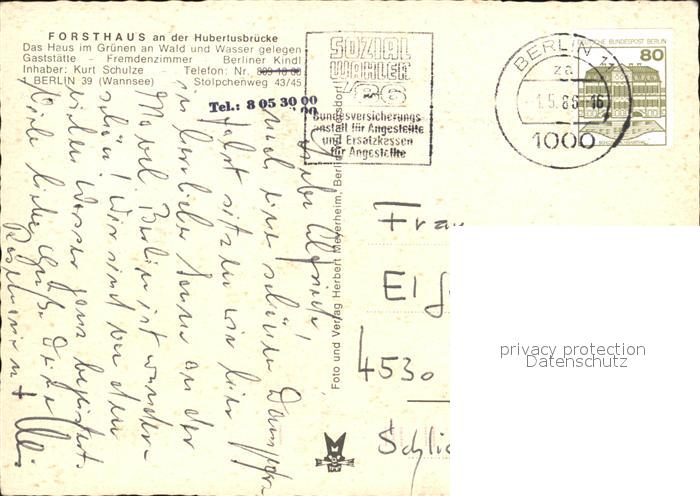 FORSTHAUS an der Hubertusbrücke
Das Haus im Grünen an Wald und Wasser gelegen
Gaststätte - Fremdenzimmer Berliner Kindl
Inhaber: Kurt Schulze - Telefon: Nr.
BERLIN 39 (Wannsee) Stolpchenweg 43/45
Tel.: 8 05 30 00
SOZIAL
WAHLEN
'86
Bundesversicherungs-
anstalt für Angestellte
und Ersatzkassen
für Angestellte
BERLIN
za
-1.5.86-16
1000
DEUTSCHE BUNDESPOST BERLIN
80
Foto und Verlag Herbert Meyerheim, Berlin
eine schöne Dampfer
fahrt sitzen wir hier
in herrlicher Sonne an der
Havel. Berlin ist wunder-
schön! Wir sind von dem
vielen Wasser ganz begeistert.
Viele liebe Grüße
Frau
4530
privacy protection
Datenschutz